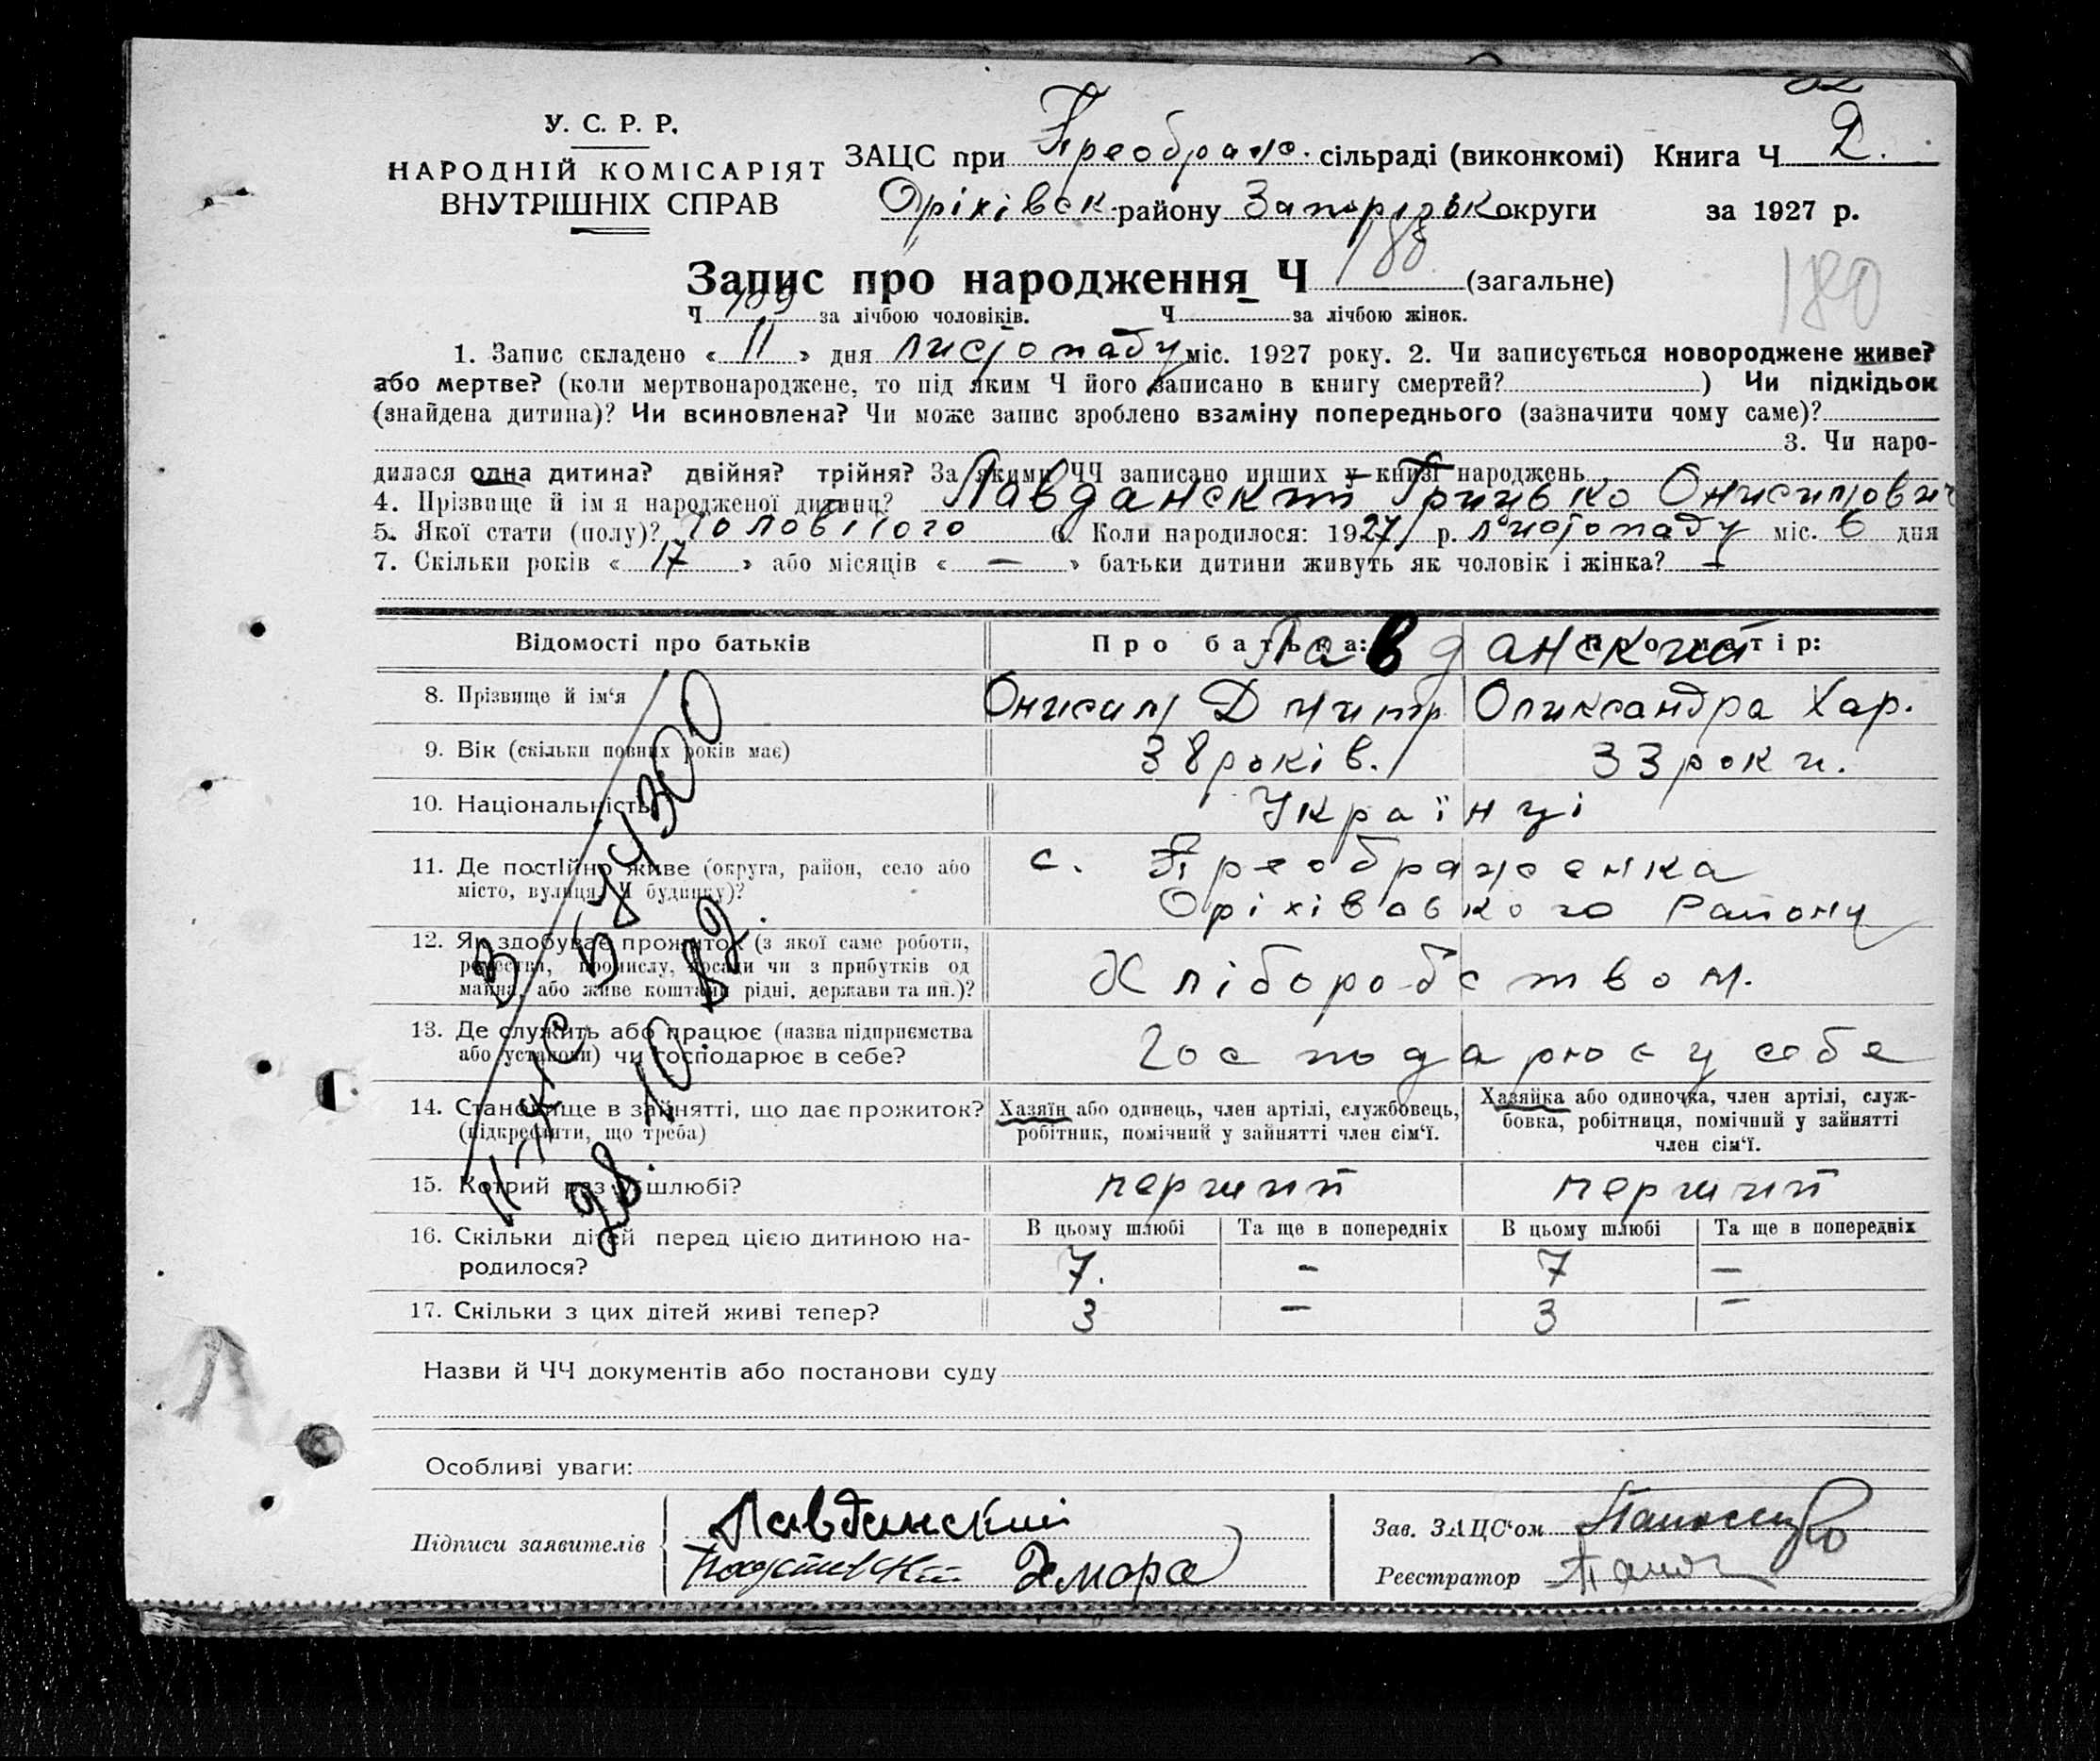 У. С. Р. Р.
НАРОДНІЙ КОМІСАРІЯТ
ВНУТРІШНІХ СПРАВ
ЗАЦС при Преображ. сільраді (виконкомі) Книга Ч 2.
Оріхівск району Запорізьк округи за 1927 р.
180
Запис про народження Ч 188 (загальне)
Ч 109 за лічбою чоловіків. Ч — за лічбою жінок.
1. Запис складено « 11 » дня листопаду міс. 1927 року. 2. Чи записується новороджене живе?
або мертве? (коли мертвонароджене, то під яким Ч його записано в книгу смертей? ) Чи підкідьок
(знайдена дитина)? Чи всиновлена? Чи може запис зроблено взаміну попереднього (зазначити чому саме)?
3. Чи наро-
дилася одна дитина? двійня? трійня? За якими ЧЧ записано инших у книзі народжень
4. Прізвище й ім'я народженої дитини? Лавданский Грицько Онисимович
5. Якої стати (полу)? Чоловічого 6. Коли народилося: 1927 р. листопаду міс. 6 дня
7. Скільки років « 17 » або місяців « — » батьки дитини живуть як чоловік і жінка? —
Відомості про батьків Про батька: Про матір:
Лавданский
8. Прізвище й ім'я Онисим Дмитр Оликсандра Хар.
9. Вік (скільки повних років має) 38 років. 33 роки.
10. Національність Українці
11. Де постійно живе (округа, район, село або
місто, вулиця, Ч будинку)?
с. Преображенка
Оріхівського Району
12. Як здобуває прожиток (з якої саме роботи,
ремества, промислу, посади чи з прибутків од
майна, або живе коштами рідні, держави та ин.)?
Хліборобством.
13. Де служить або працює (назва підприємства
або установи) чи господарює в себе?
Господарює у себе
14. Становище в зайнятті, що дає прожиток?
(підкреслити, що треба)
Хазяїн або одинець, член артілі, службовець,
робітник, помічний у зайнятті член сім'ї.
Хазяйка або одиночка, член артілі, служ-
бовка, робітниця, помічний у зайнятті
член сім'ї.
15. Котрий раз у шлюбі? первий первий
16. Скільки дітей перед цією дитиною на-
родилося?
В цьому шлюбі Та ще в попередніх В цьому шлюбі Та ще в попередніх
7. — 7 —
17. Скільки з цих дітей живі тепер? 3 — 3 —
Назви й ЧЧ документів або постанови суду
Особливі уваги:
Підписи заявителів
Лавданский
Зав. ЗАЦС'ом
Реєстратор
28.10.82.